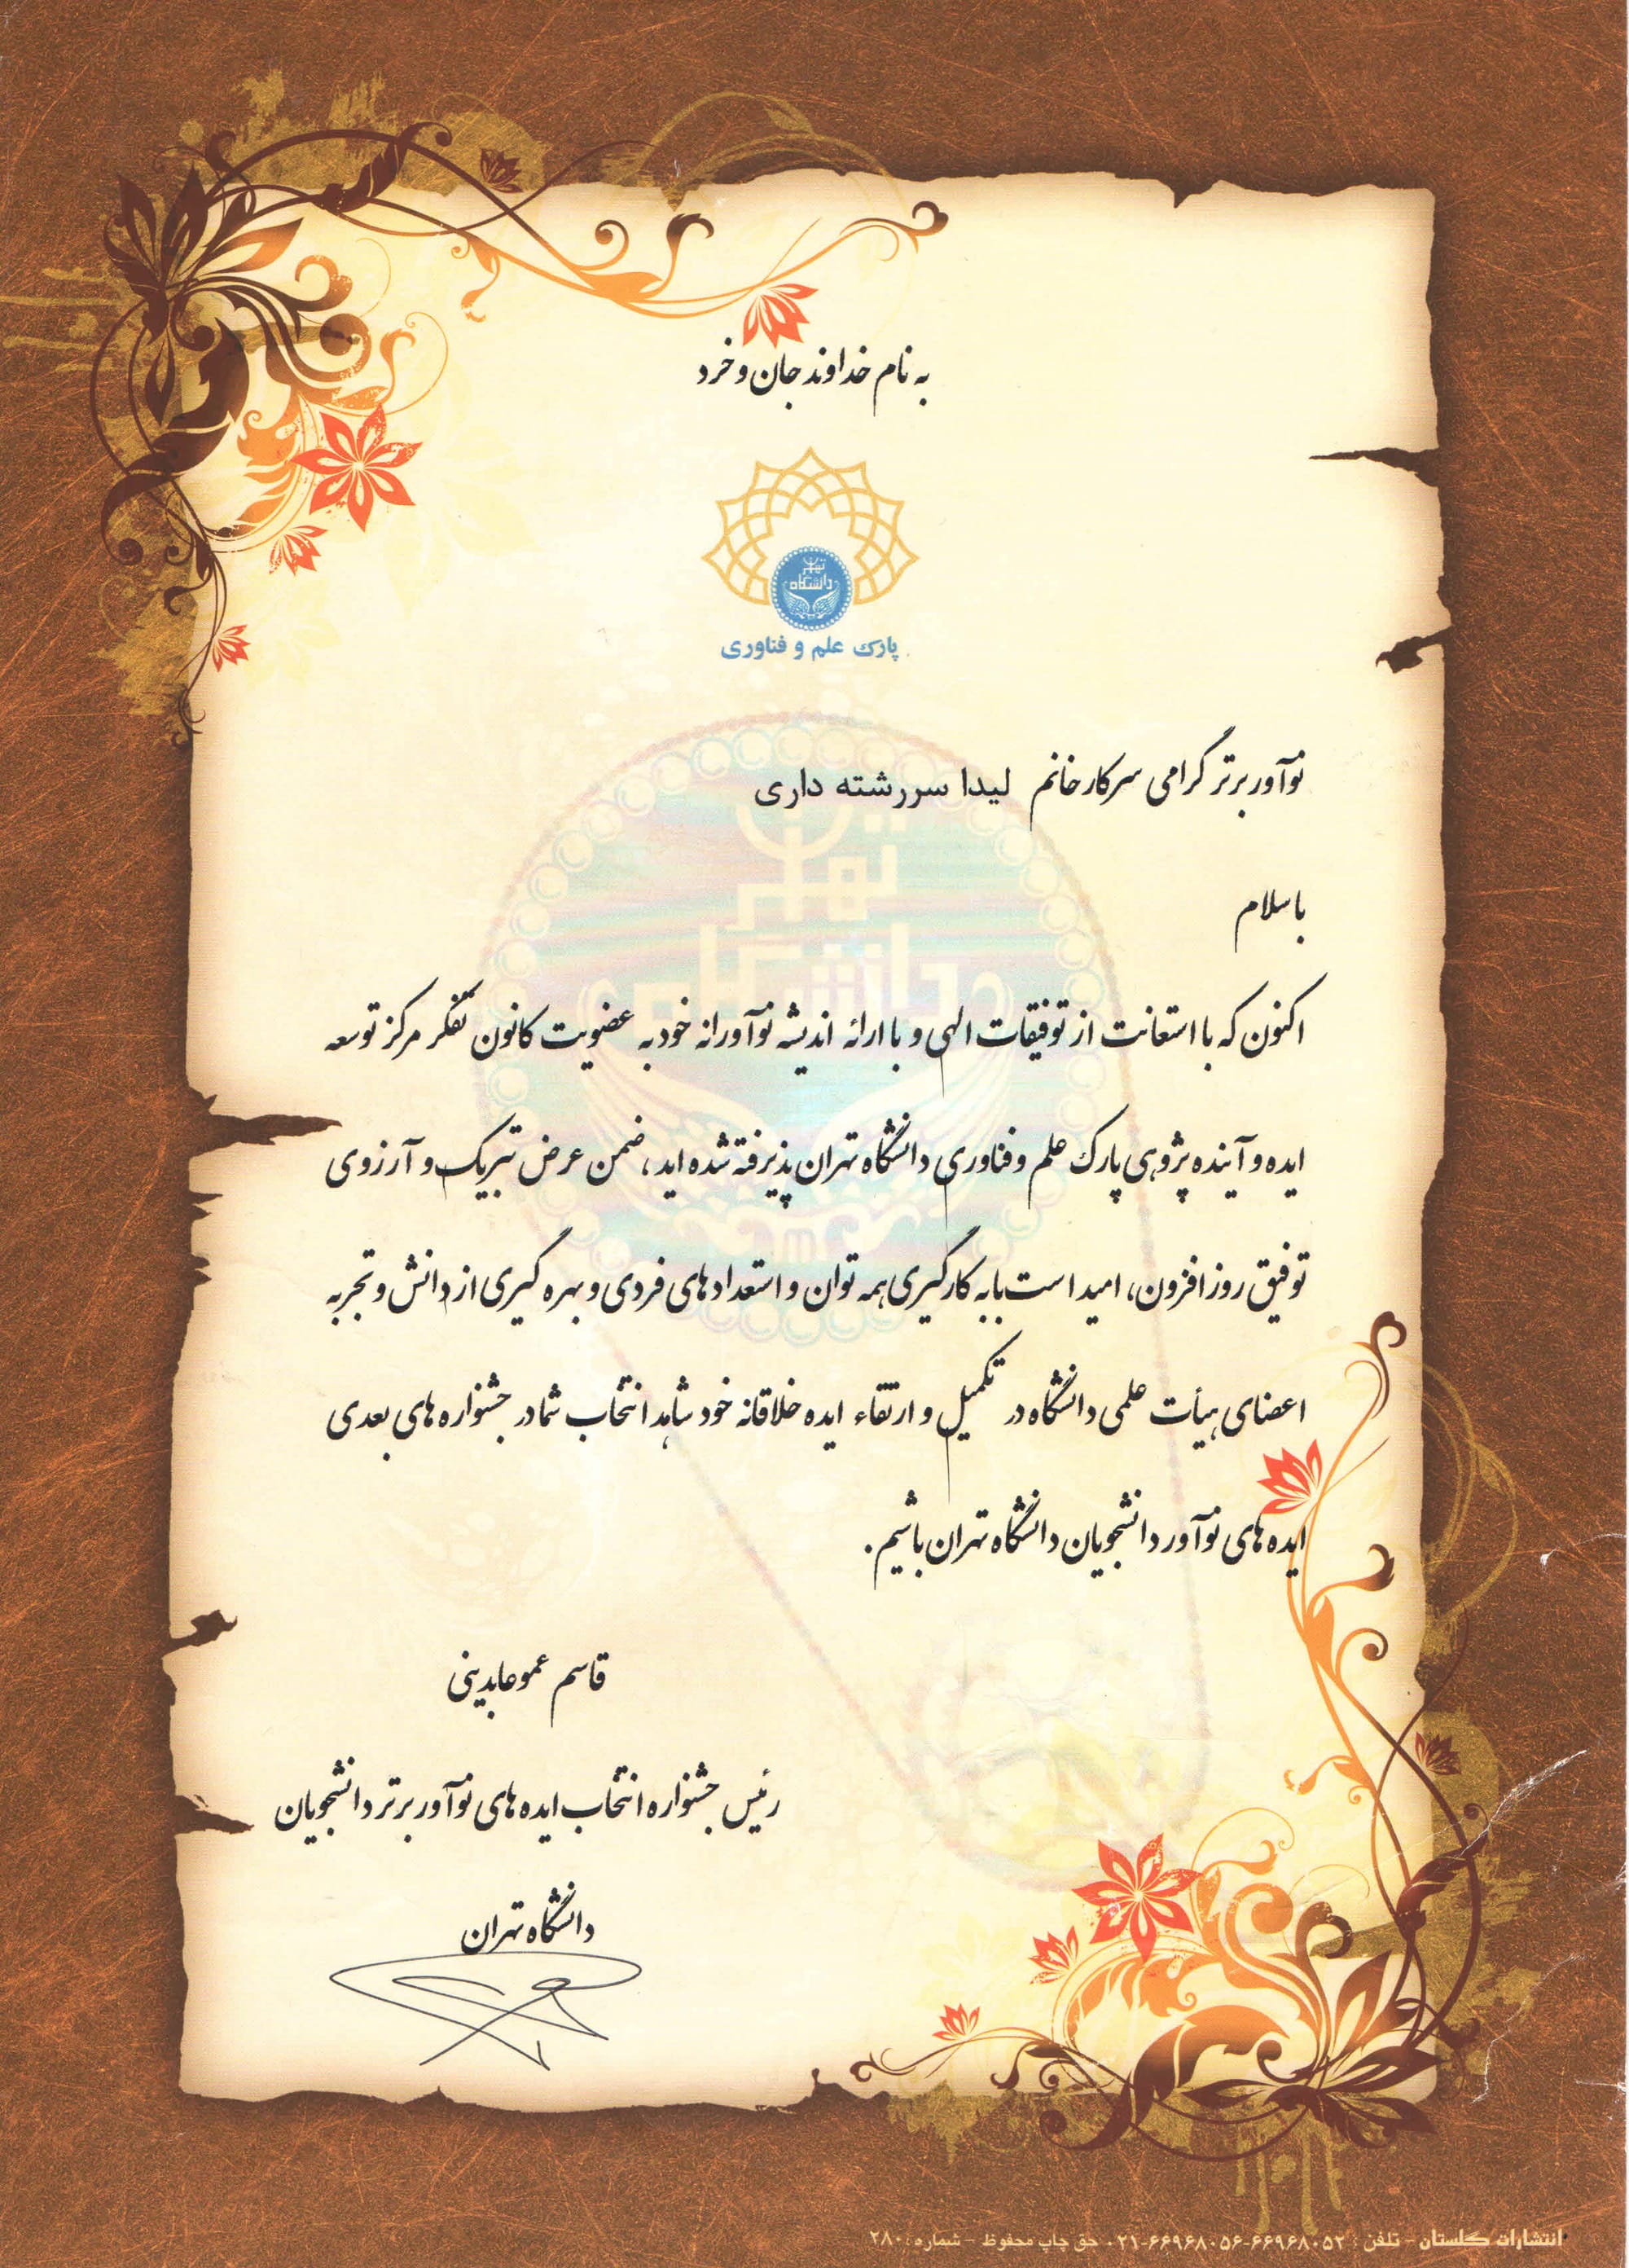 به نام خداوند جان و خرد
تهران
دانشگاه
پارک علم و فناوری
نوآور برتر گرامی سرکار خانم لیدا سررشته داری
با سلام
اکنون که با استعانت از توفیقات الهی و با ارائه اندیشه نوآورانه خود به عضویت کانون تفکر مرکز توسعه
ایده و آینده پژوهی پارک علم و فناوری دانشگاه تهران پذیرفته شده اید، ضمن عرض تبریک و آرزوی
توفیق روز افزون، امید است با به کارگیری همه توان و استعدادهای فردی و بهره گیری از دانش و تجربه
اعضای هیأت علمی دانشگاه در تکمیل و ارتقاء ایده خلاقانه خود شاهد انتخاب شما در جشنواره های بعدی
ایده های نوآور دانشجویان دانشگاه تهران باشیم.
قاسم عموعابدینی
رئیس جشنواره انتخاب ایده های نوآور برتر دانشجویان
دانشگاه تهران
انتشارات گلستان - تلفن : ۶۶۹۶۸۰۵۲-۶۶۹۶۸۰۵۶-۰۲۱ حق چاپ محفوظ - شماره : ۲۸۰